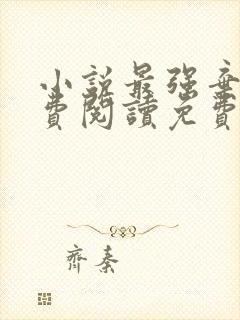 小説最強棄
費閱讀免費
齊秦